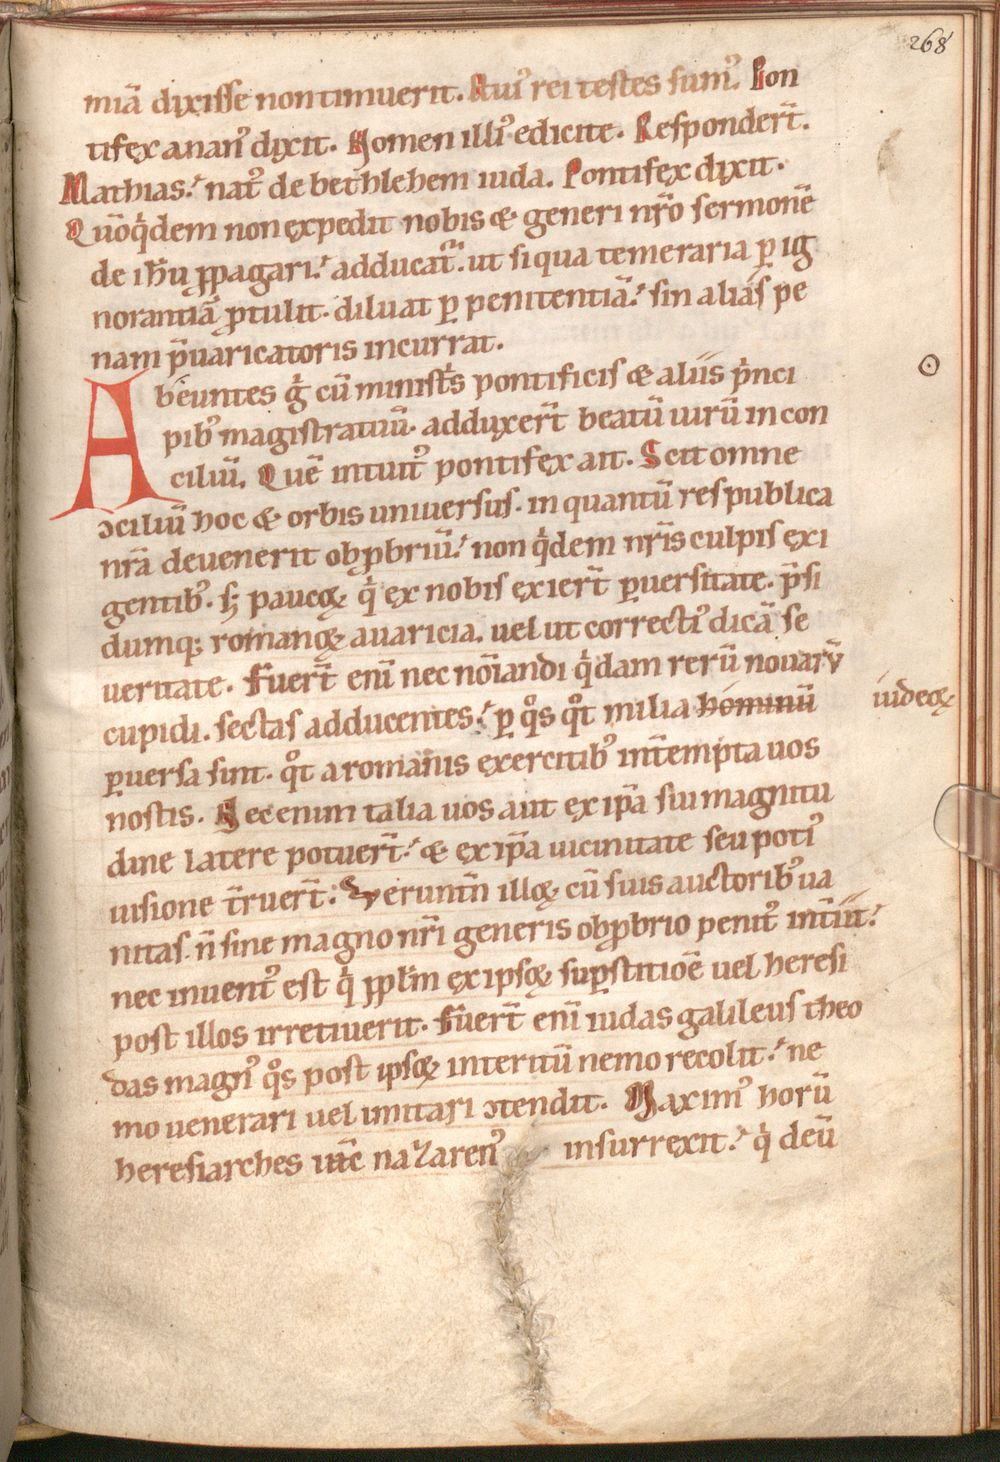 268
miā dixisse non timuerit. Cui᷒ rei testes sum᷒. Pon
tifex anan᷒ dixit. Nomen illi᷒ edicite. Responder̄t.
Mathias. nat᷒ de bethlehem iuda. Pontifex dixit.
Quōq̇dem non expedit nobis & generi nr̄o sermonē
de ih̄u ꝓpagari. adducat᷑. ut siqua temeraria ꝑ ig
norantiā ꝓtulit. diluat ꝑ penitentiā. sin alias pe
nam p̄uaricatoris incurrat.
Abeuntes g̊ cū minist̄s pontificis & aliis ṗnci
pib᷒ magistratuū. adduxer̄t beatū uirū in con
ciliū. Quē intuit᷒ pontifex ait. Scit omne
ↄciliū hoc & orbis uniuersus. in quantū res publica
nr̄a deuenerit obꝓbriū. non q̇dem nr̄is culpis exi
gentib᷒. s; paucoꝝ q̇ ex nobis exier̄t ꝑuersitate. p̄si
dumq; romanoꝝ auaricia. uel ut correcti᷒ dicā se
ueritate. Fuer̄t enī nec nōiandi q̇dam rerū nouarū
cupidi. sectas adducentes. ꝑ q̊s q̊t milia hominū iudeoꝝ
ꝑuersa sint. q̊t a romanis exercitib᷒ int̄empta uos
nostis. Nec enim talia uos aut ex ip̄a sui magnitu
dine latere potuer̄t. & ex ip̄a uicinitate seu poti᷒
uisione t̄ruer̄t. Veruntn̄ illoꝝ cū suis auctorib᷒ ua
nitas. n̄ sine magno nr̄i generis obꝓbrio penit᷒ int̄iit.
nec inuent᷒ est q̇ ꝓpłm ex ipsoꝝ suꝑstitiōe uel heresi
post illos irretiuerit. Fuer̄t enī iudas galileus theo
das magn᷒ q̊s post ipsoꝝ interitū nemo recolit. ne
mo uenerari uel imitari ↄtendit. Maxim᷒ horū
heresiarches iħc nazaren᷒ insurrexit. q̇ deū